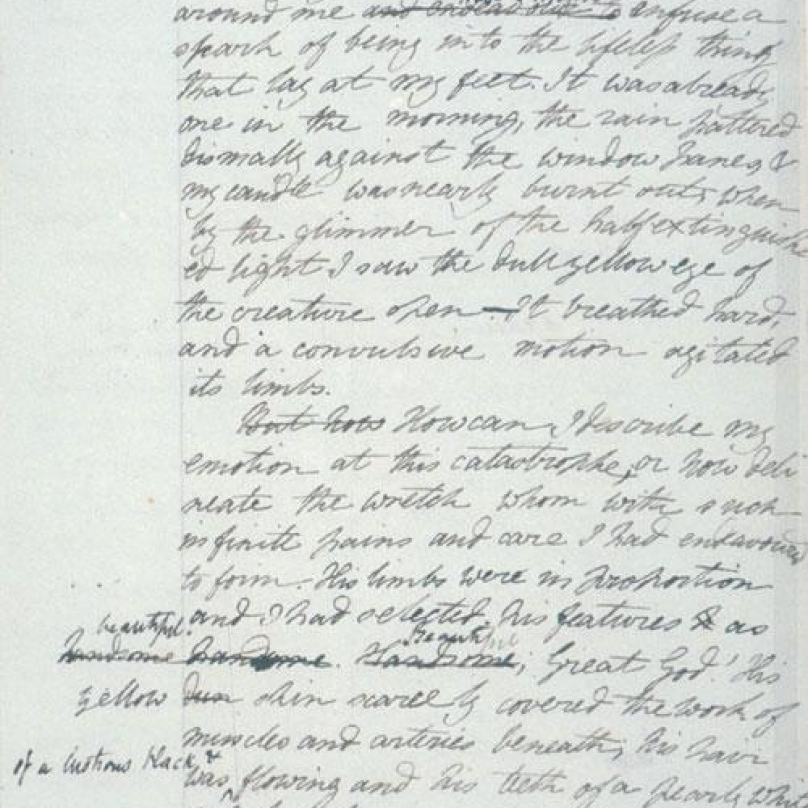 around me and endeavour to enfuse a
spark of being into the lifeless thing
that lay at my feet. It was already
one in the morning, the rain pattered
dismally against the window panes, &
my candle was nearly burnt out, when
by the glimmer of the half extinguish
ed light I saw the dull yellow eye of
the creature open — It breathed hard,
and a convulsive motion agitated
its limbs.
But how How can I describe my
emotion at this catastrophe, or how deli
neate the wretch whom with such
infinite pains and care I had endeavoured
to form. His limbs were in proportion
and I had selected his features & as
beautiful.
handsome handsome. Handsome; Great God! His
Beautiful
yellow dun skin scarcely covered the work of
muscles and arteries beneath; his hair
of a lustrous black &
was flowing and his teeth of a pearly white